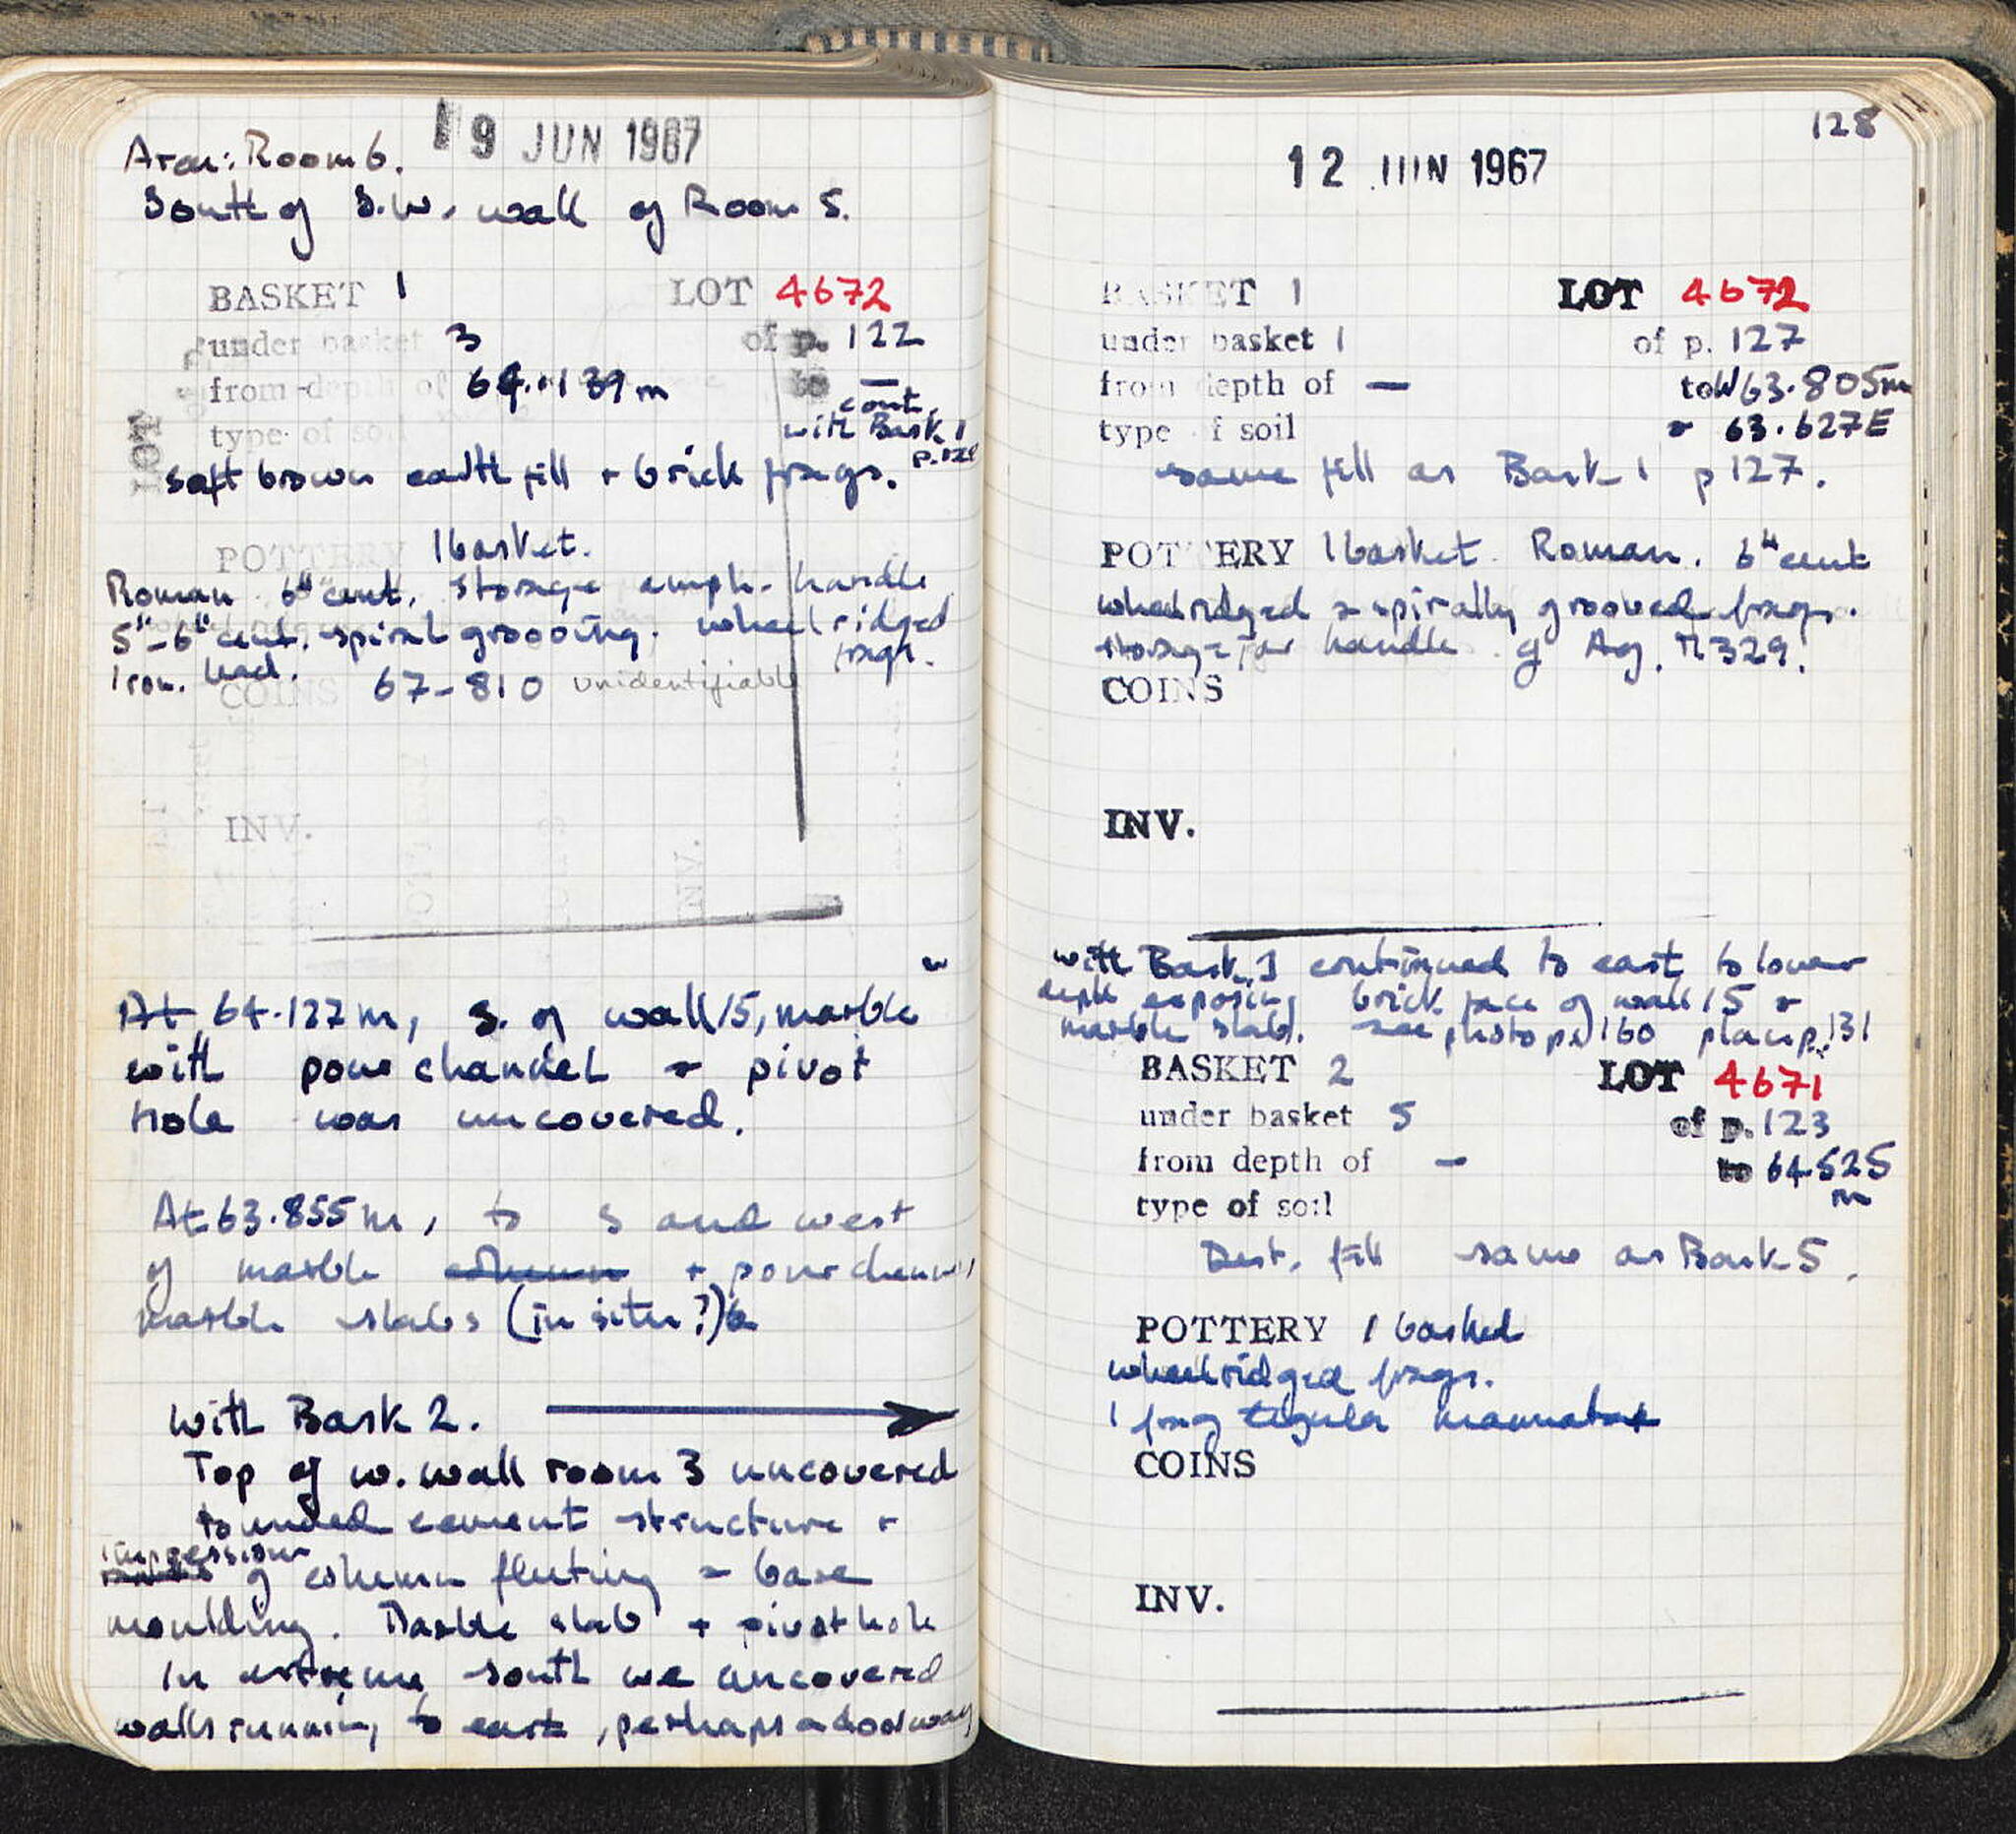 Area: Room 6. 19 JUN 1967
South of S.W. wall of Room 5.
BASKET 1 LOT 4672
under basket 3 of p. 122
from depth of m to —
cont.
type of soil with Bask 1
p. 128
LOT
soft brown earth fill + brick frags.
POTTERY 1 basket.
Roman 6th cent. storage amph. handle
5th–6th cent. spiral grooving. wheel ridged
frags.
Iron. lead.
COINS 67-810 unidentifiable
INV.
At 64.127 m, S. of wall 15, marble
with pour channel + pivot
hole was uncovered.
At 63.855 m, to S and west
of marble column + pour channel
marble slabs (in situ?)
with Bask 2.
Top of w. wall room 3 uncovered
rounded cement structure +
impression
of column fluting + base
moulding. Marble slab + pivot hole
In extreme south we uncovered
walls running to east, perhaps a doorway
128
12 JUN 1967
BASKET 1 LOT 4672
under basket 1 of p. 127
from depth of — to W 63.805m
type of soil + 63.627E
same fill as Bask 1 p 127.
POTTERY 1 basket. Roman. 6th cent
wheelridged + spirally grooved frags.
storage jar handle cf Ag. M329.
COINS
INV.
with Bask. 1 continued to east to lower
depth exposing brick face of wall 15 +
marble slab. see photo p. 160 plan p. 131
BASKET 2 LOT 4671
under basket 5 of p. 123
from depth of — to 64.525
m
type of soil
Dest. fill same as Bask 5.
POTTERY 1 basket
wheelridged frags.
1 frag tegula mammata
COINS
INV.